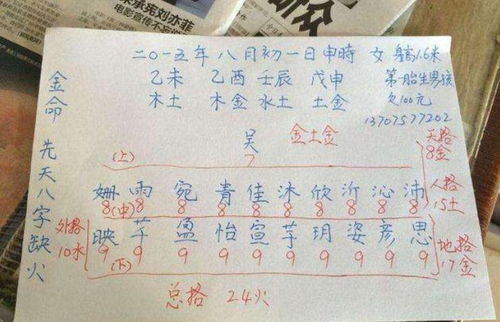 承宪刘亦菲
二〇一五年八月初一日申時 女 身高1.6米
乙未 乙酉 壬辰 戊申 第一胎生男孩
木土 木金 水土 土金 欠100元
13707577202
金命 先天八字缺火
吴 金土金
(上) 7 天格 8金
姗 雨 宛 青 佳 沐 欣 沂 沁 沛 人格
8 (中) 8 8 8 8 8 8 8 8 8 15土
外格 映 芊 盈 怡 宣 芋 玥 姿 彦 思 地格
10水 9 (下) 9 9 9 9 9 9 9 9 9 17金
总格 24火